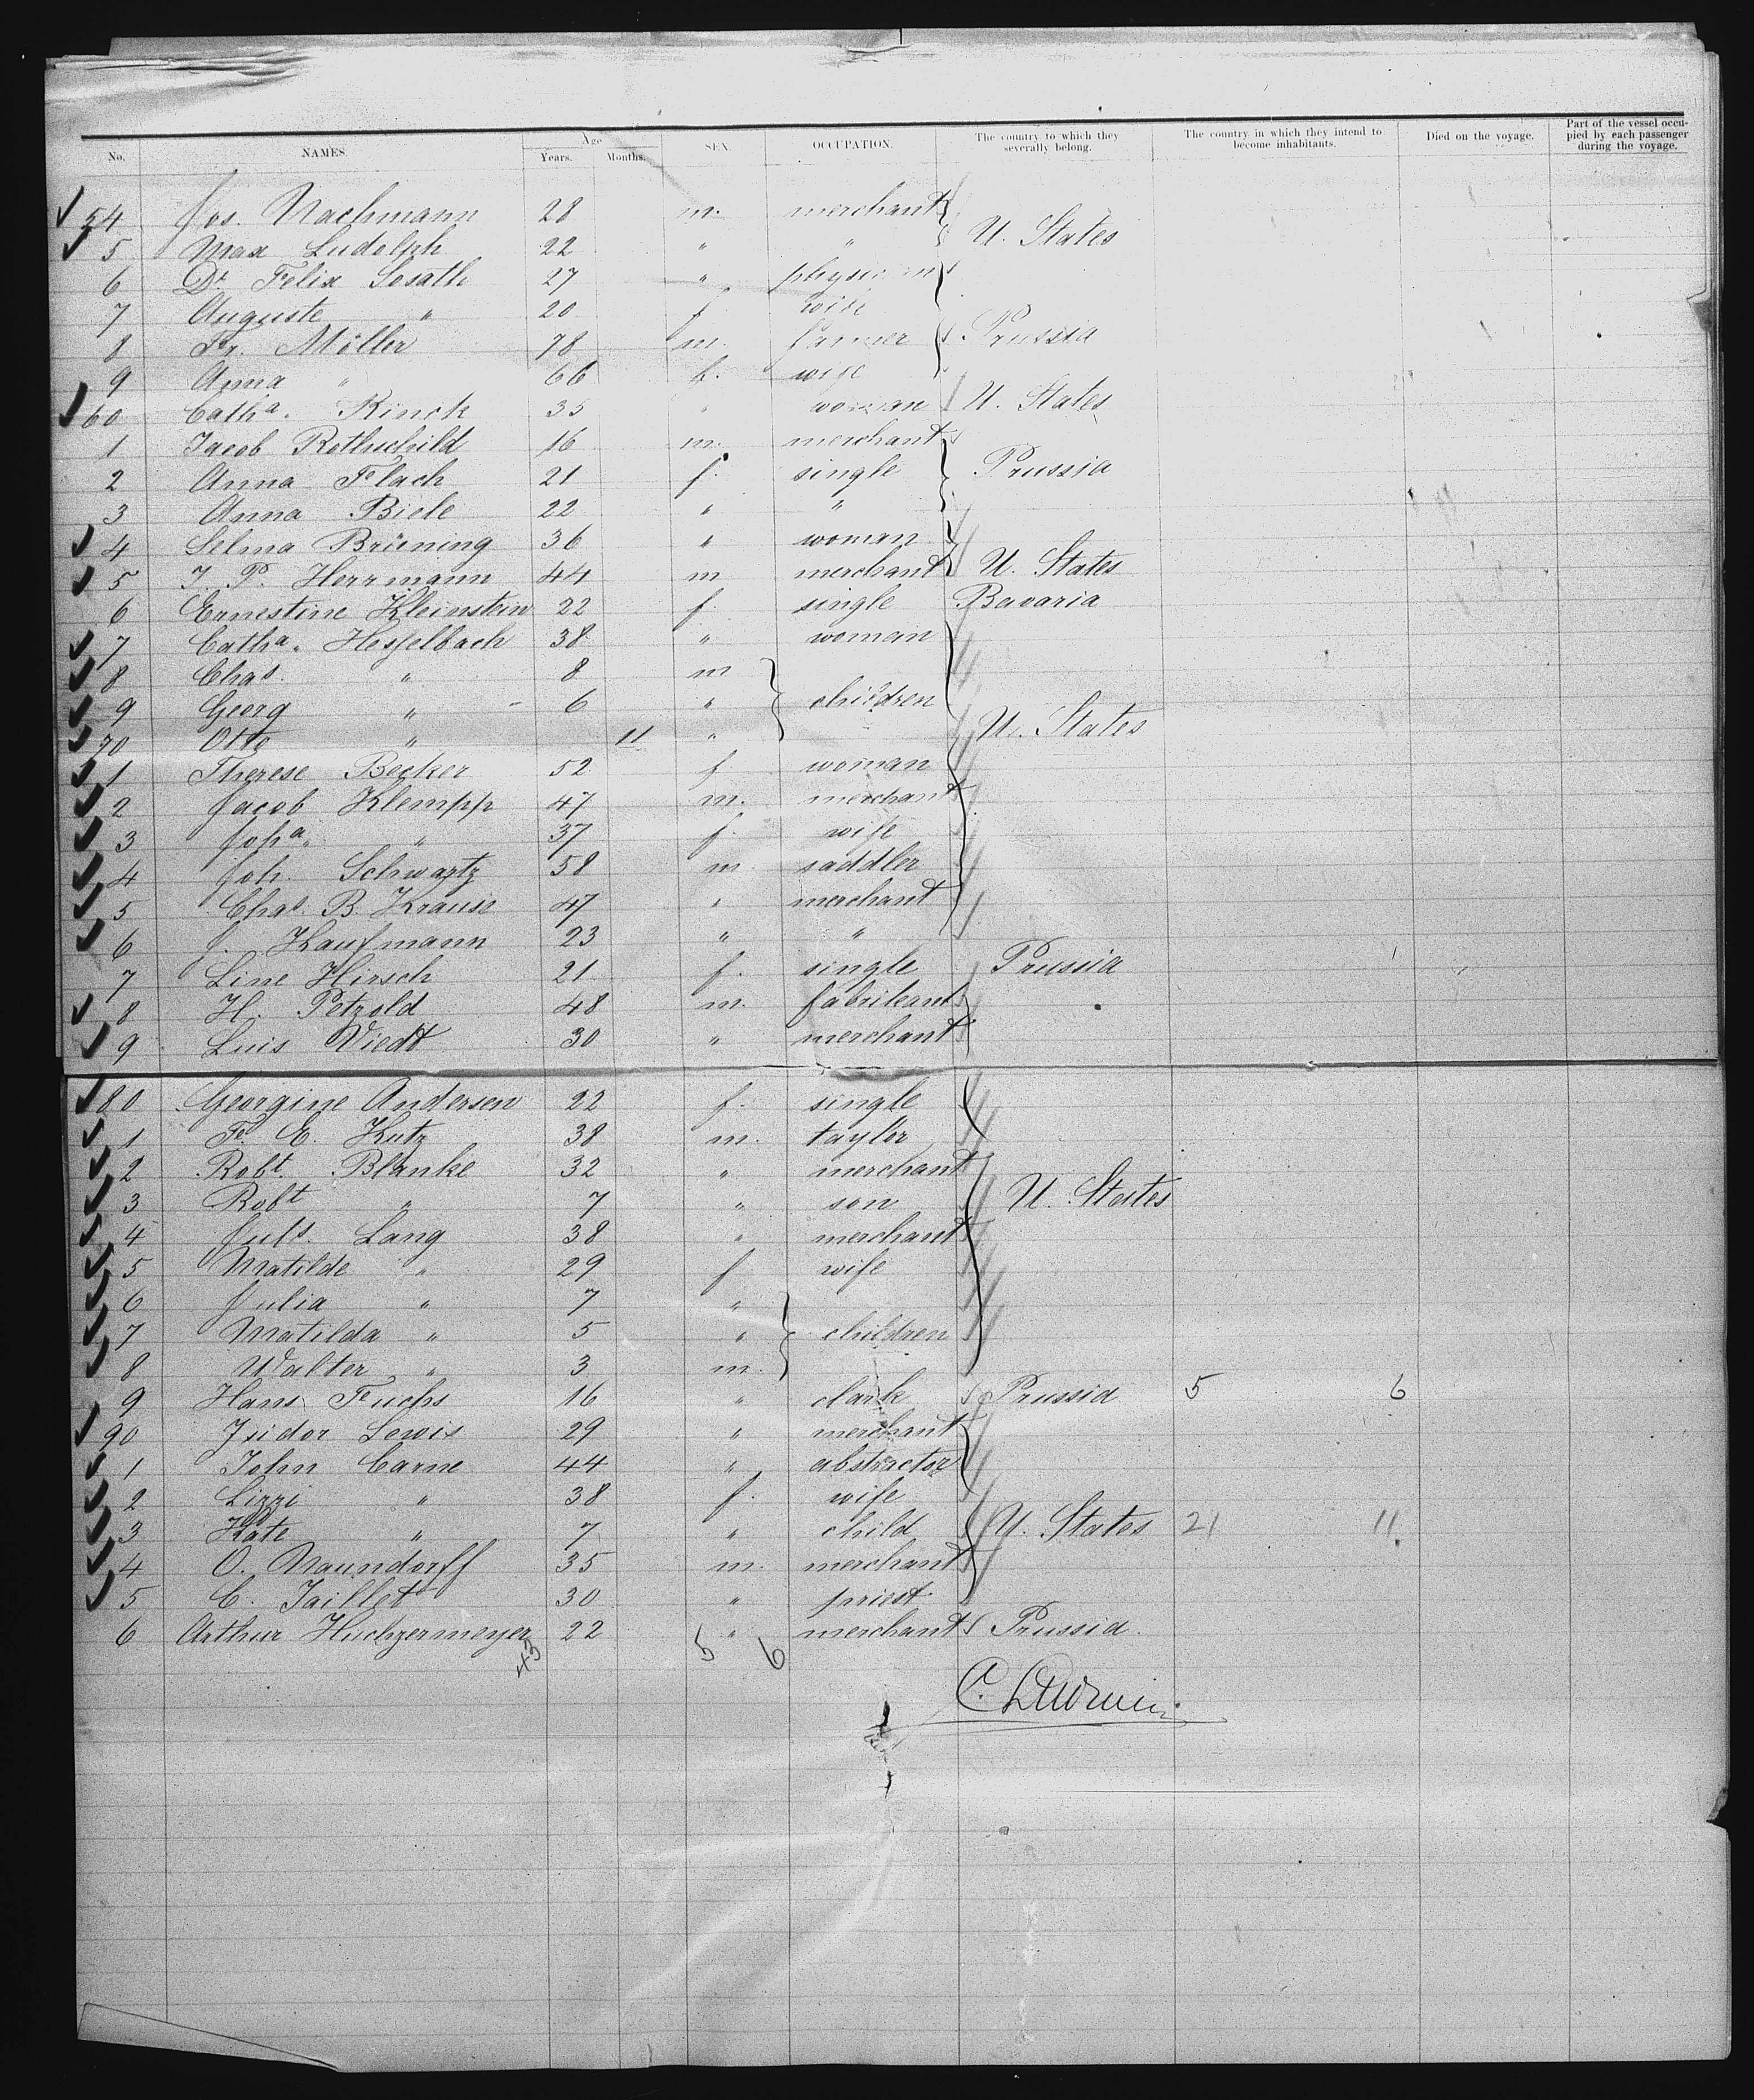 No. NAMES. Age Years. Months. SEX OCCUPATION. The country to which they severally belong. The country in which they intend to become inhabitants. Died on the voyage. Part of the vessel occupied by each passenger during the voyage.
54 Jos. Nachmann 28 m. merchant
5 Max Ludolph 22 " " U. States
6 Dr. Felix 27 " physician
7 Auguste " 20 f. wife
8 Fr. Möller 78 m. farmer Prussia
9 Anna " 66 f. wife
60 Catha. Rinck 35 " woman U. States
1 Jacob Rothschild 16 m. merchant
2 Anna Flach 21 f. single Prussia
3 Anna Biele 22 " "
4 Selma Brüning 36 " woman
5 J. P. Herrmann 44 m merchant U. States
6 Ernestine Kleinstein 22 f. single Bavaria
7 Catha. Hesselbach 38 " woman
8 Chas. " 8 m
9 Georg " 6 " children
70 Otto " 11 " U. States
1 Therese Becker 52 f woman
2 Jacob Klempp 47 m. merchant
3 Joha. " 37 f. wife
4 Joh. Schwartz 58 m. saddler
5 Chas. B. Krause 47 " merchant
6 J. Kaufmann 23 " "
7 Line Hirsch 21 f. single Prussia
8 H. Petzold 48 m. fabrikant
9 Luis Viedt 30 " merchant
80 Georgine Andersen 22 f. single
1 F. E. Kutz 38 m. taylor
2 Robt. Blanke 32 " merchant
3 Robt " 7 " son U. States
4 Juls. Lang 38 " merchant
5 Matilde " 29 f wife
6 Julia " 7 "
7 Matilda " 5 " children
8 Walter " 3 m.
9 Hans Fuchs 16 " clark Prussia 5 6
90 Isidor Lewis 29 " merchant
1 John Carne 44 " abstractor
2 Lizzi " 38 f. wife
3 Kate " 7 " child U. States 21 11
4 O. Naundorff 35 m. merchant
5 C. Jaillet 30 " priest
6 Arthur Huchzermeyer 22 " merchant Prussia.
43 5 6